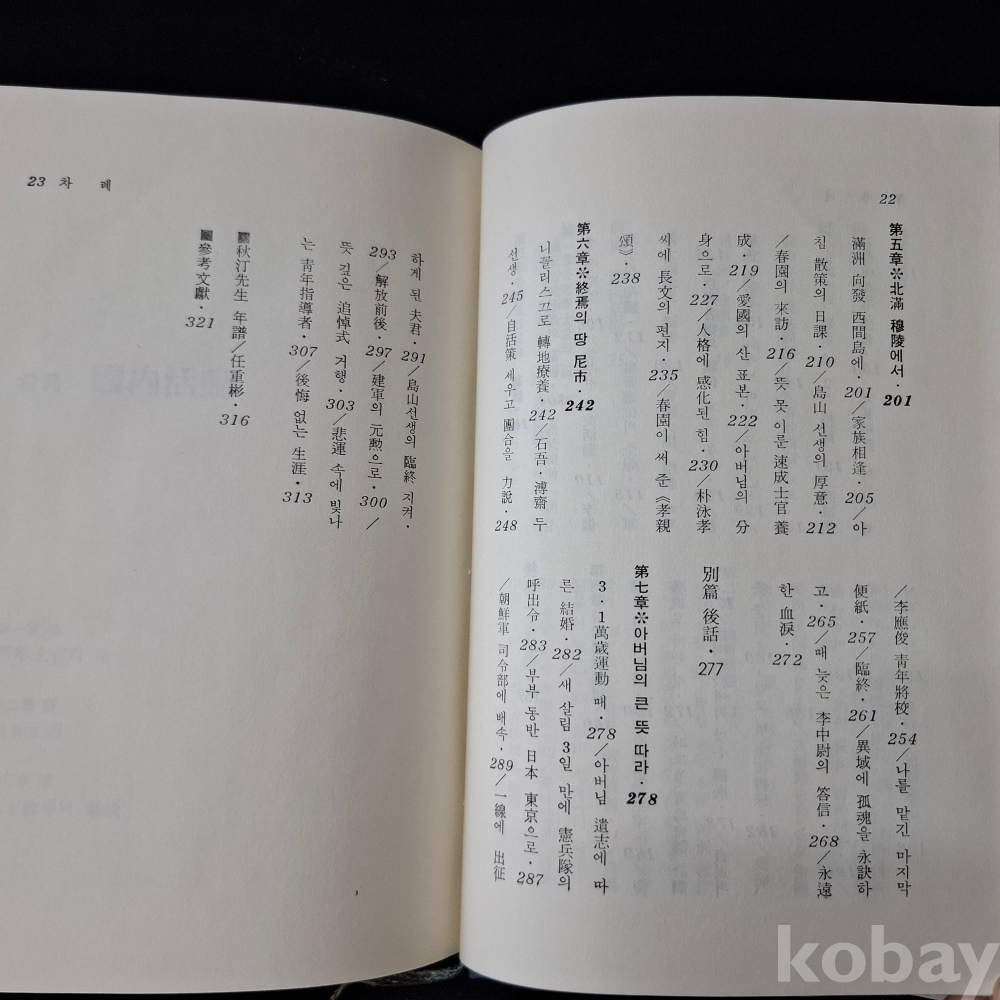 22
第五章※北滿 穆陵에서·201
滿洲 向發 西間島에·201/家族相逢·205/아
침 散策의 日課·210/島山 선생의 厚意·212
/春園의 來訪·216/뜻 못 이룬 速成士官 養
成·219/愛國의 산 표본·222/아버님의 分
身으로·227/人格에 感化된 힘·230/朴泳孝
씨에 長文의 편지·235/春園이 써 준《孝親
頌》·238
第六章※終焉의 땅 尼市·242
니꼴리스끄로 轉地療養·242/石吾·溥齋 두
선생·245/自活策 세우고 團合을 力說·248
/李應俊 靑年將校·254/나를 맡긴 마지막
便紙·257/臨終·261/異域에 孤魂을 永訣하
고·265/때 늦은 李中尉의 答信·268/永遠
한 血淚·272
別篇 後話·277
第七章※아버님의 큰 뜻 따라·278
3·1萬歲運動 때·278/아버님 遺志에 따
른 結婚·282/새 살림 3일 만에 憲兵隊의
呼出令·283/부부 동반 日本 東京으로·287
/朝鮮軍 司令部에 배속·289/一線에 出征
23 차 례
하게 된 夫君·291/島山선생의 臨終 지켜·
293/解放前後·297/建軍의 元勲으로·300/
뜻 깊은 追悼式 거행·303/悲運 속에 빛나
는 靑年指導者·307/後悔 없는 生涯·313
▣秋汀先生 年譜/任重彬·316
▣參考文獻·321
kobay